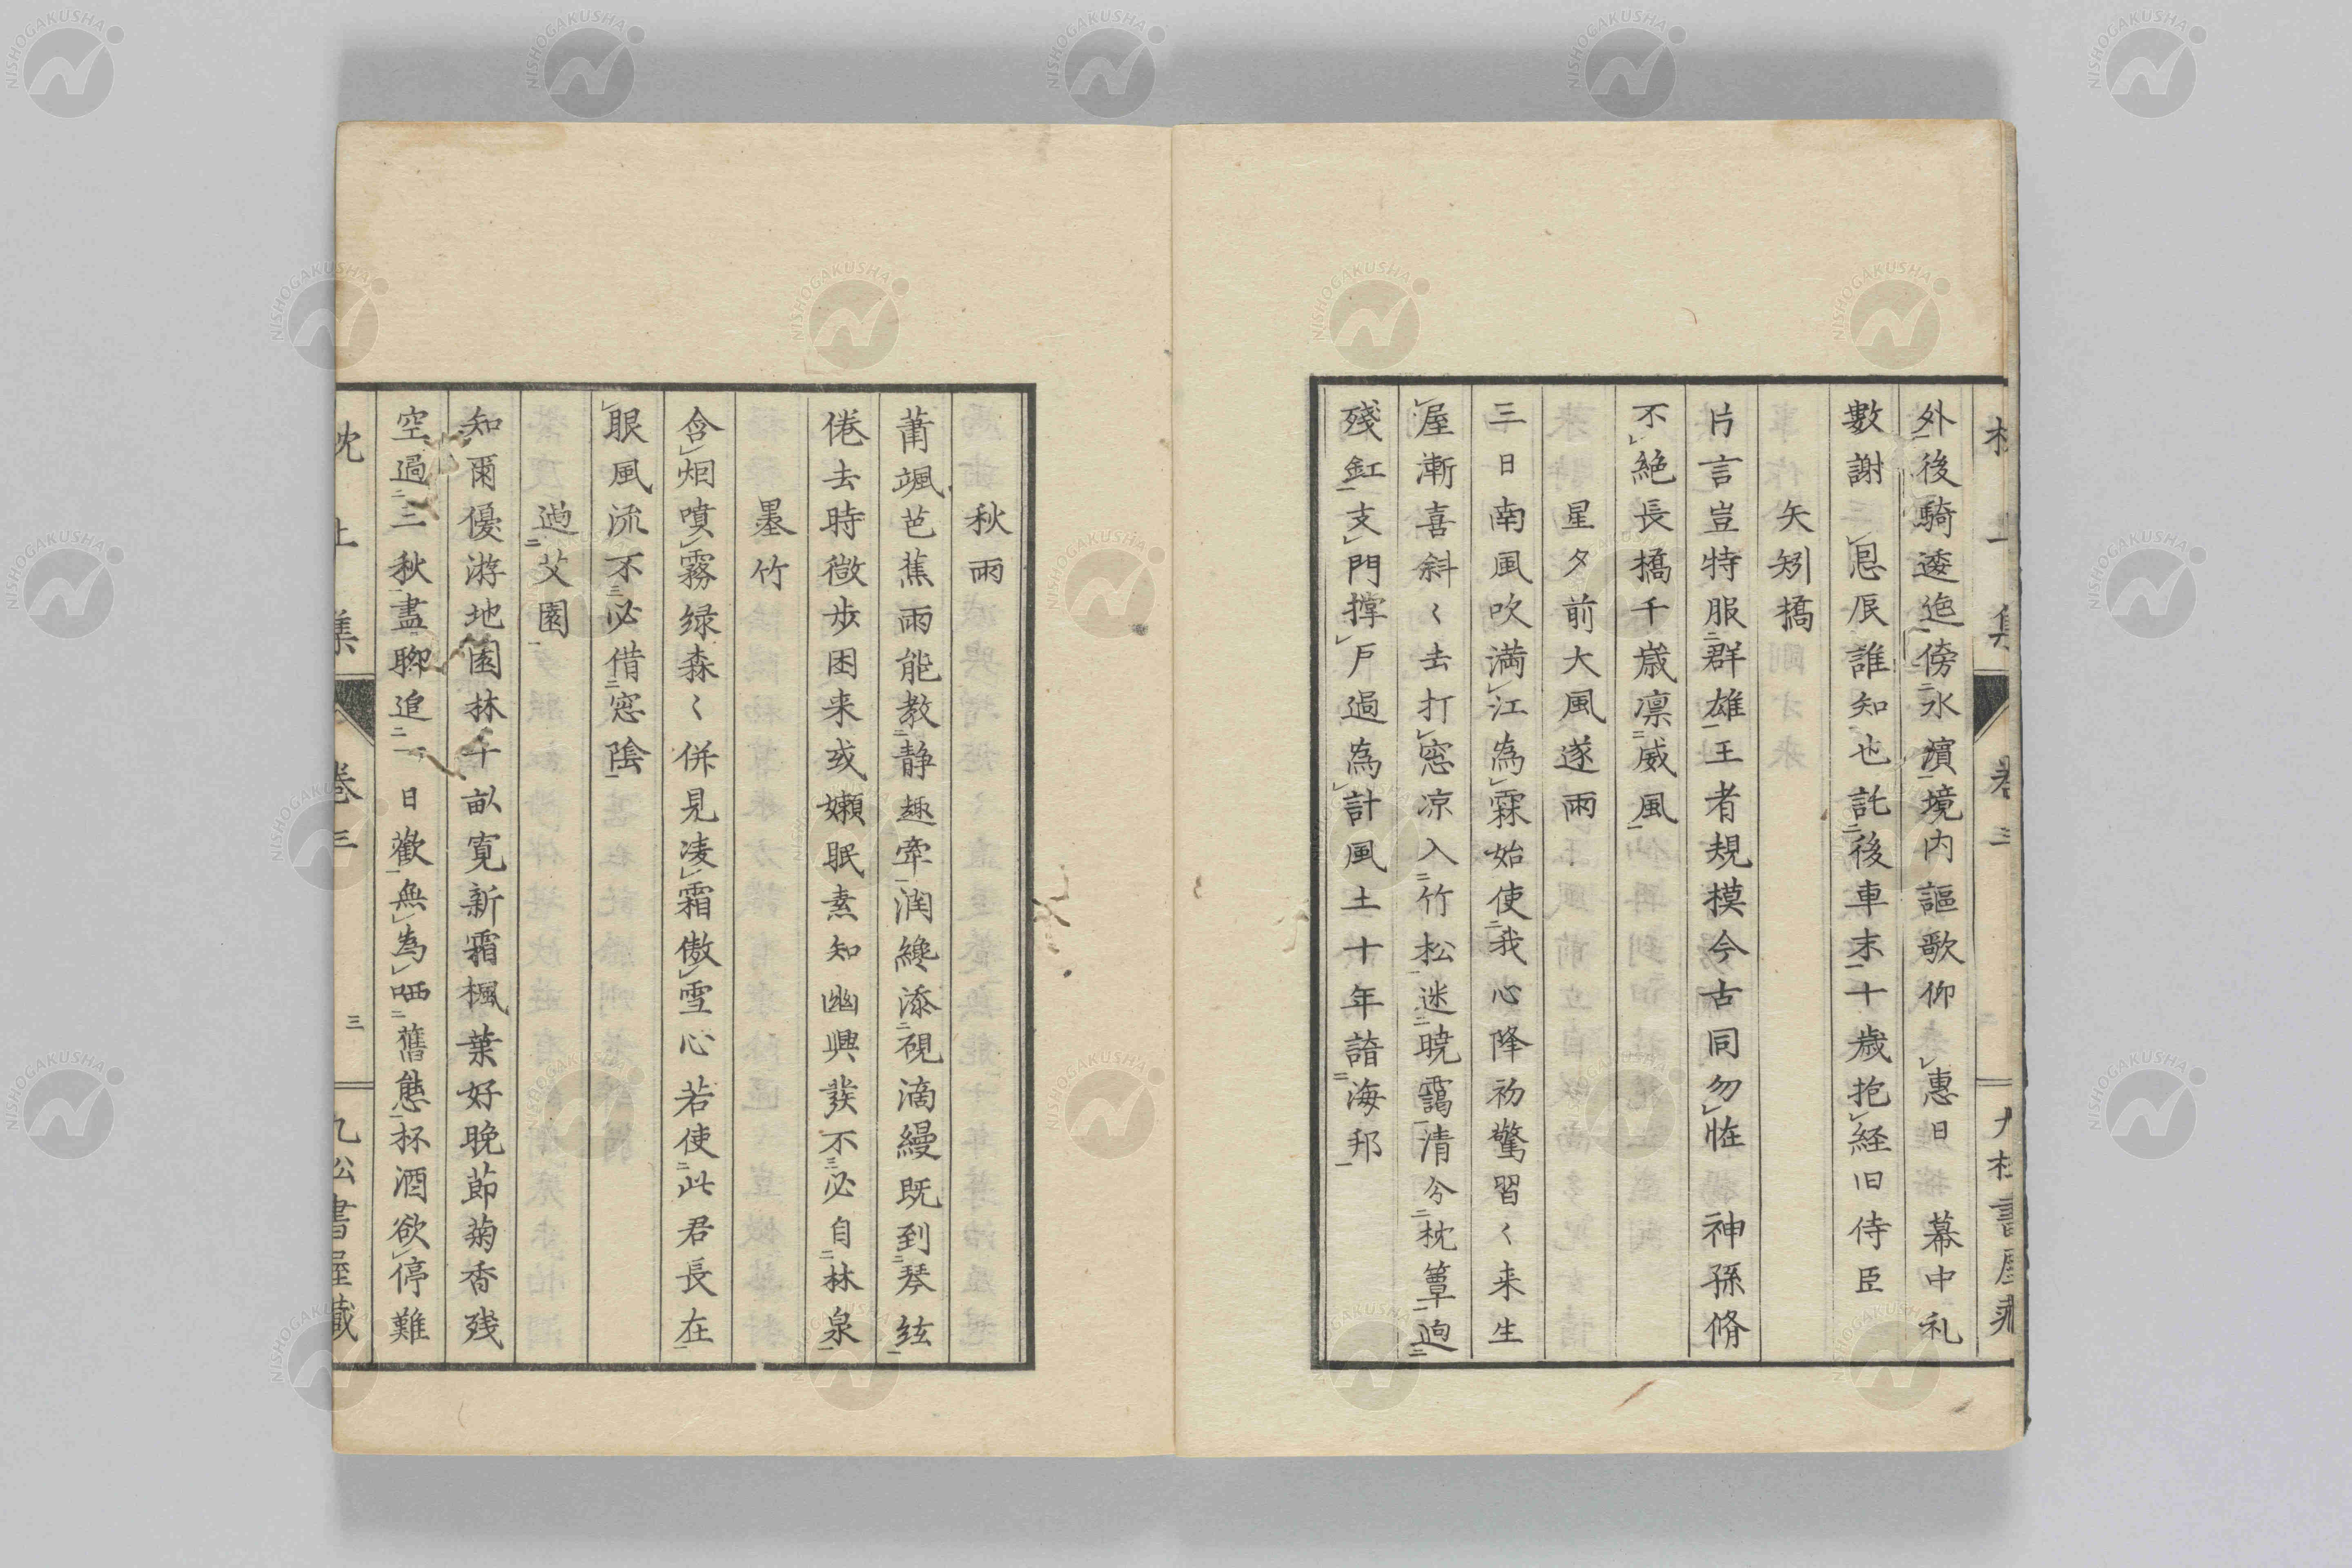 外後騎逶迤傍水濆境内謳歌仰 惠日 幕中礼
數謝 恩辰誰知也託後車末十歳抱経旧侍臣
矢矧橋
片言豈特服群雄王者規模今古同勿恠 神孫脩
不絶長橋千歳凛威風
星夕前大風遂雨
三日南風吹満江為霖始使我心降初驚習〻来生
屋漸喜斜〻去打窓凉入竹松迷暁靄清分枕簟逈
殘釭支門撑戸過為計風土十年諳海邦
秋雨
莆颯芭蕉雨能教静趣牽潤纔添硯滴縵既到琴絃
倦去時微歩困来或嬾眠素知幽興發不必自林泉
墨竹
含烟噴霧緑森〻併見凌霜傲雪心若使此君長在
眼風流不必借窓陰
過艾園
知爾優游地園林十畝寛新霜楓葉好晩節菊香残
空過三秋盡聊追一日歡無為哂舊態杯酒欲停難
枕上集 巻三 三 九松書屋藏